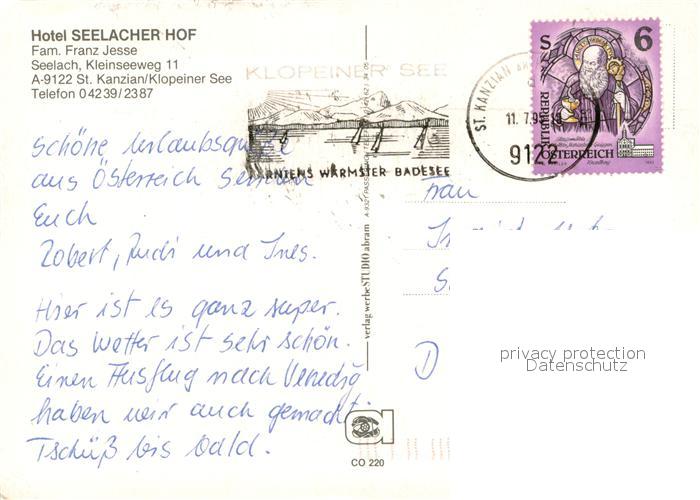 Hotel SEELACHER HOF
Fam. Franz Jesse
Seelach, Kleinseeweg 11
A-9122 St. Kanzian/Klopeiner See
Telefon 04239/2387
KLOPEINER SEE
ÄRNTENS WÄRMSTER BADESEE
ST. KANZIAN
11.7.9
9122
S 6
REPUBLIK
ÖSTERREICH
Schöne Urlaubsgrüße
aus Österreich senden
Euch
Robert, Rudi und Ines.
Hier ist es ganz super.
Das Wetter ist sehr schön.
Einen Ausflug nach Venedig
haben wir auch gemacht.
Tschüß bis bald.
verlag werbeSTUDIO abram
CO 220
Frau
D
privacy protection
Datenschutz